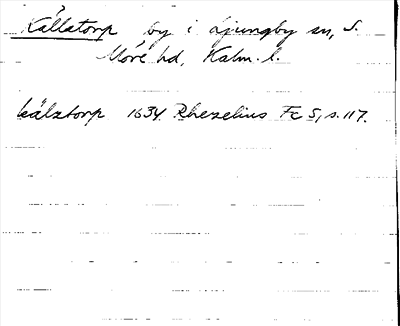 Källatorp by i Ljungby sn, S.
Möre hd, Kalm. l.
kälztorp 1634 Rhezelius Fc 5, s. 117.